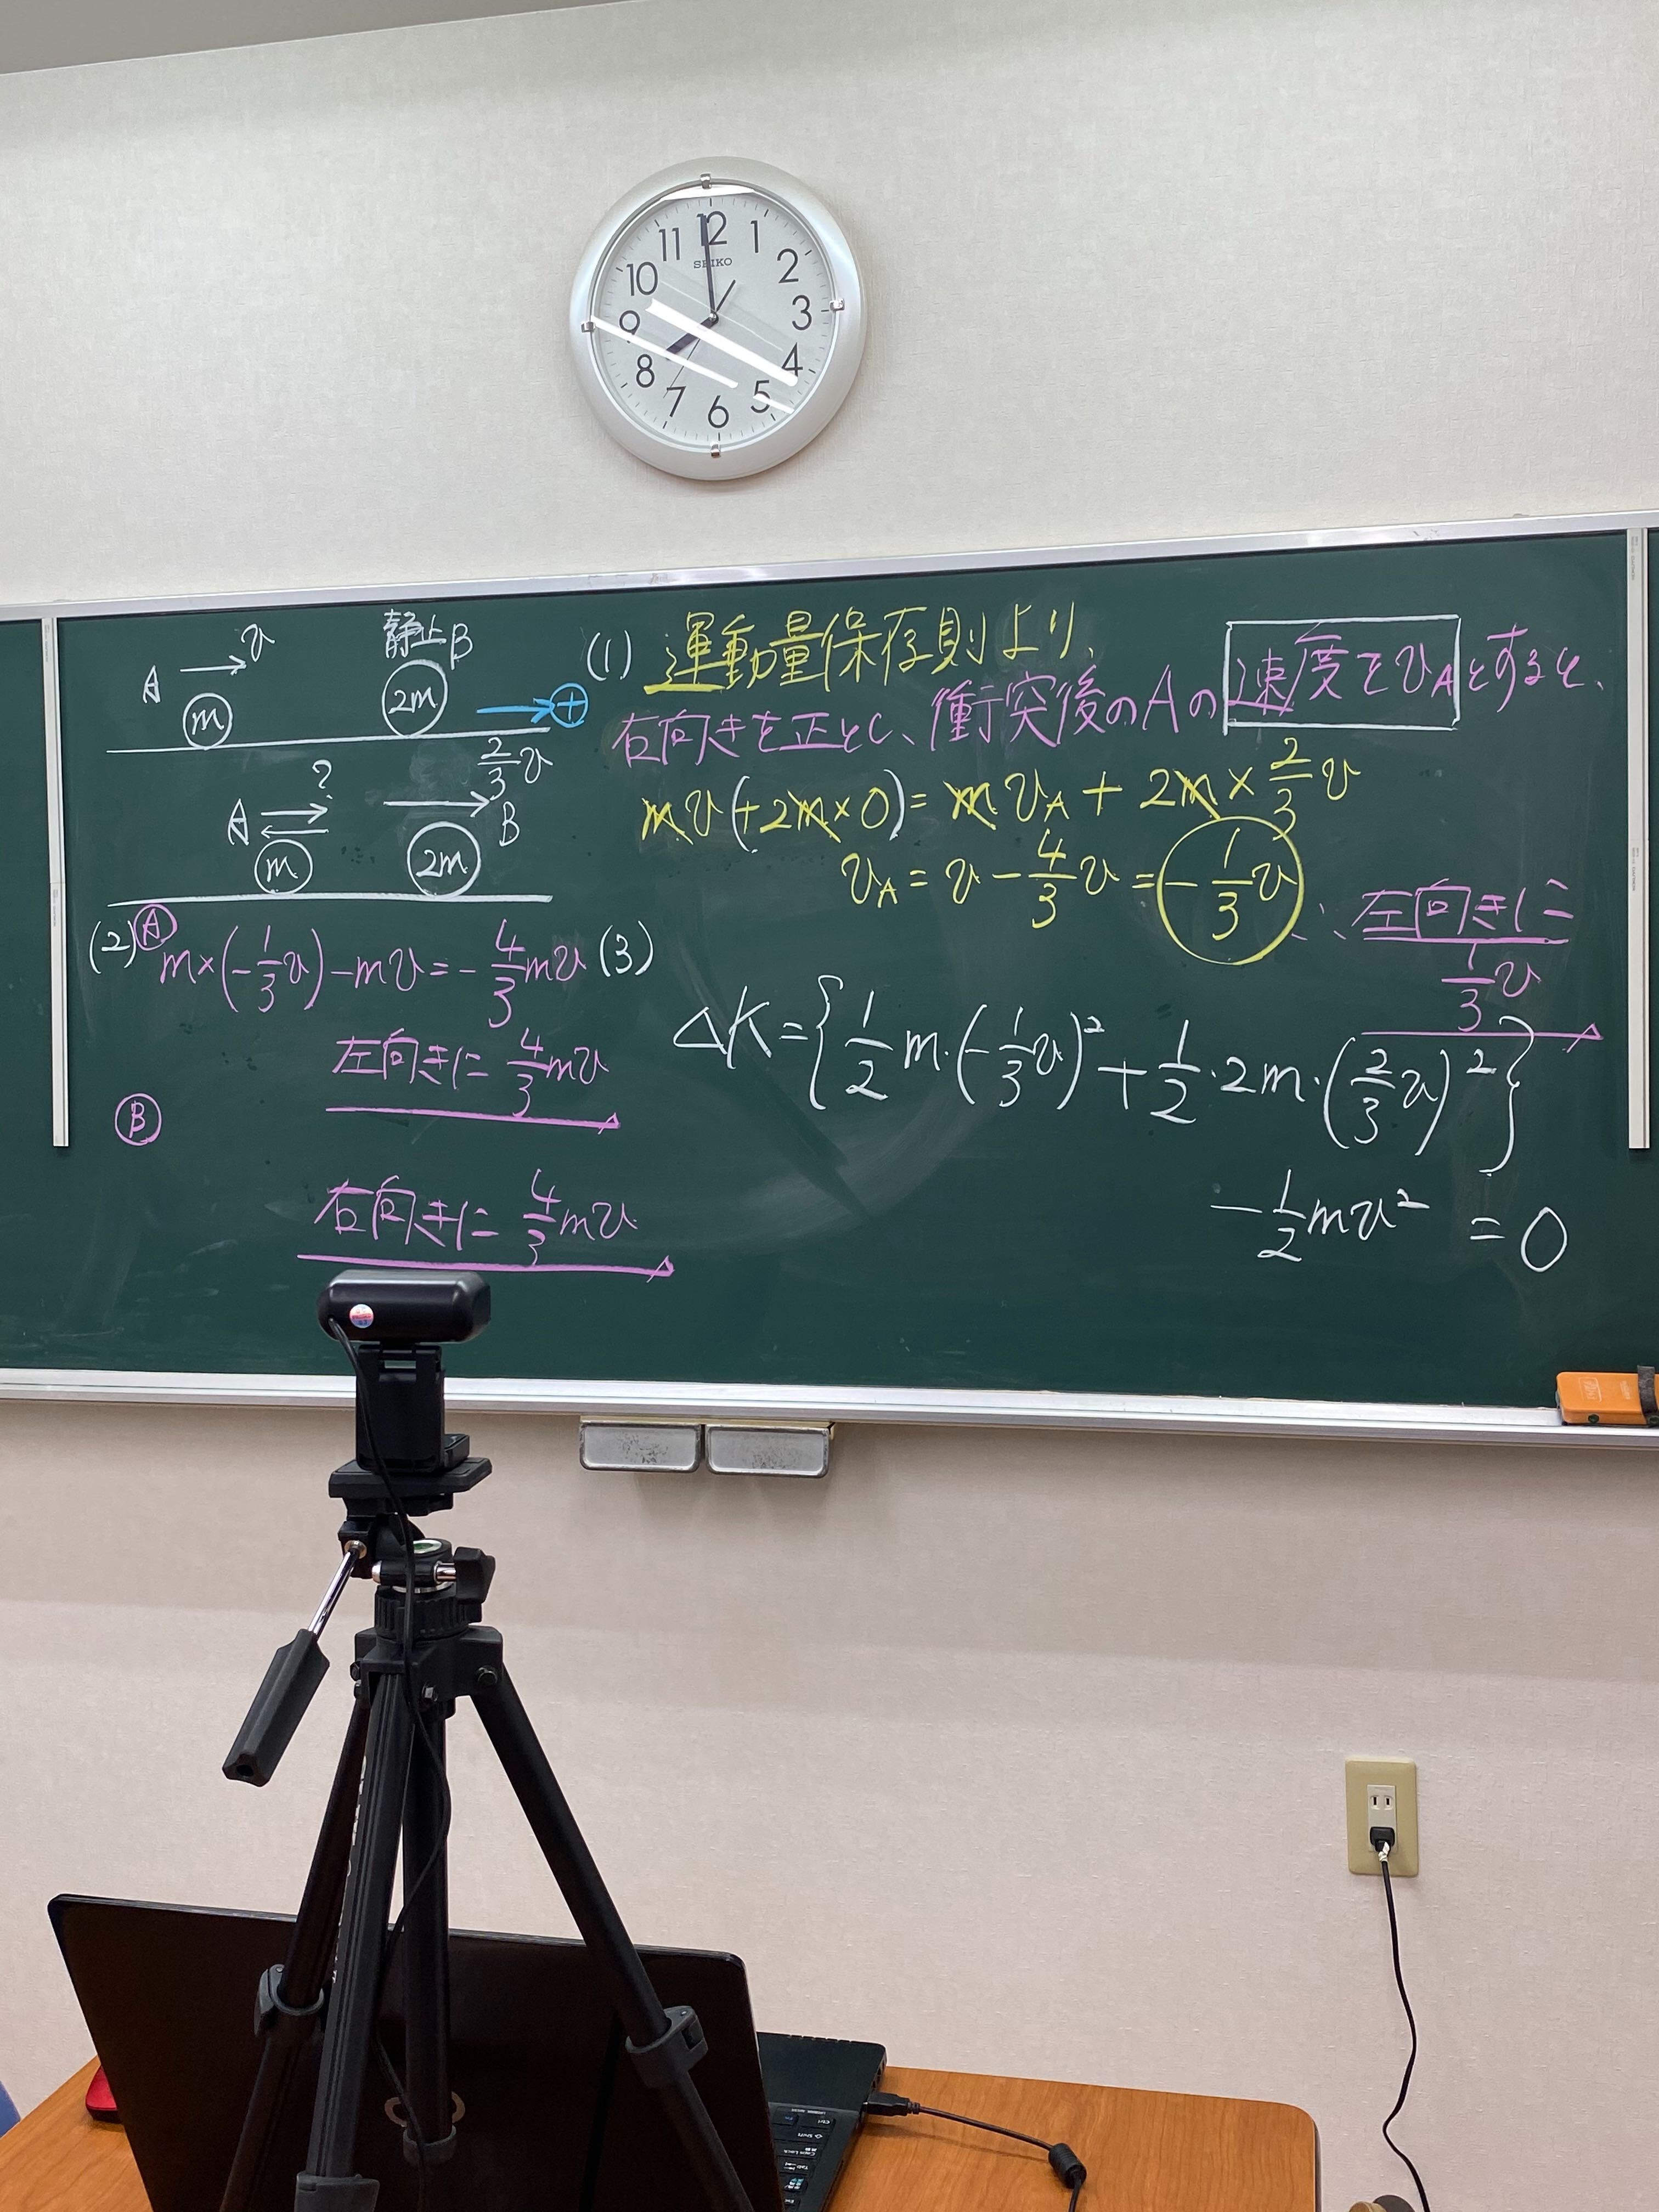 12
11 1
SEIKO
10 2
9 3
8 4
7 5
6
A → v 静止 B
m 2m → ⊕
A ? 2/3 v B
m 2m
(1) 運動量保存則より、
右向きを正とし、衝突後のAの速度をvAとすると、
mv(+2m×0) = mvA + 2m × 2/3 v
vA = v − 4/3 v = −1/3 v ∴ 左向きに
1/3 v
(2) Ⓐ m×(−1/3 v)−mv = −4/3 mv
左向きに 4/3 mv
Ⓑ
右向きに 4/3 mv
(3)
ΔK = {1/2 m·(−1/3 v)² + 1/2·2m·(2/3 v)²}
−1/2 mv² = 0